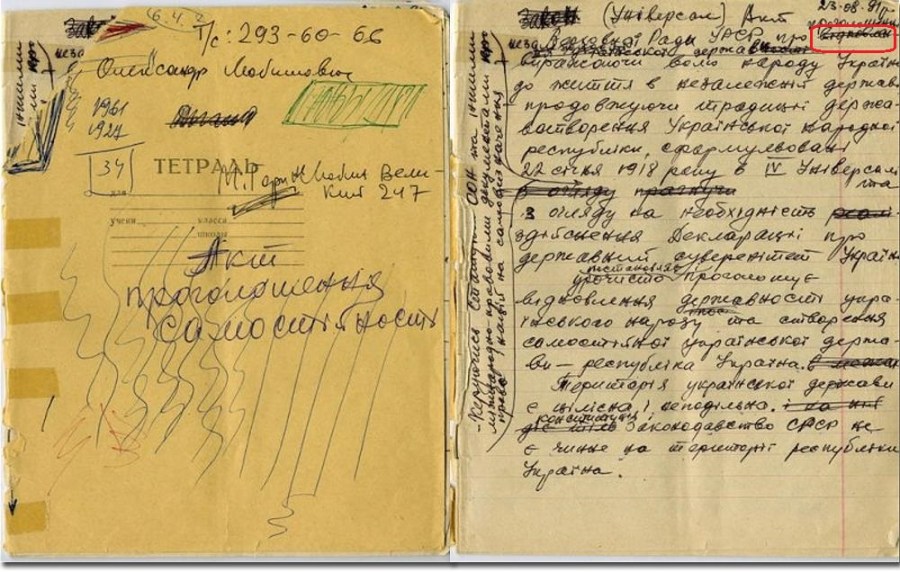 6.4.2
Т/с: 293-60-66
Олександр Любимович
1961
1927
34
ТЕТРАДЬ
М. Горинь
Любин Вели-
кий 247
для
учени
класса
школы
Акт
проголошення
самостійності
23.08.91р.
Закон (Універсал) Акт
проголошення
Верховної Ради УРСР про
Української держав
Виражаючи волю народу Україн
до життя в незалежній державі
продовжуючи традиції держа-
вотворення Української народної
республіки, сформульовані
22 січня 1918 року в IV Універсалі
та
в огляду
з огляду на необхідність
здійснення Декларації про
державний суверенітет Україн
урочисто проголошує
відновлення державності укра-
їнського народу та створення
самостійної української держа-
ви – республіка Україна.
Територія української держави
є цілісна і неподільна.
конституції
Законодавство СРСР не
є чинне на території республіки
Україна.
Керуючись Статутом ООН та іншими
міжнародно правовими документами про
право націй на самовизначення